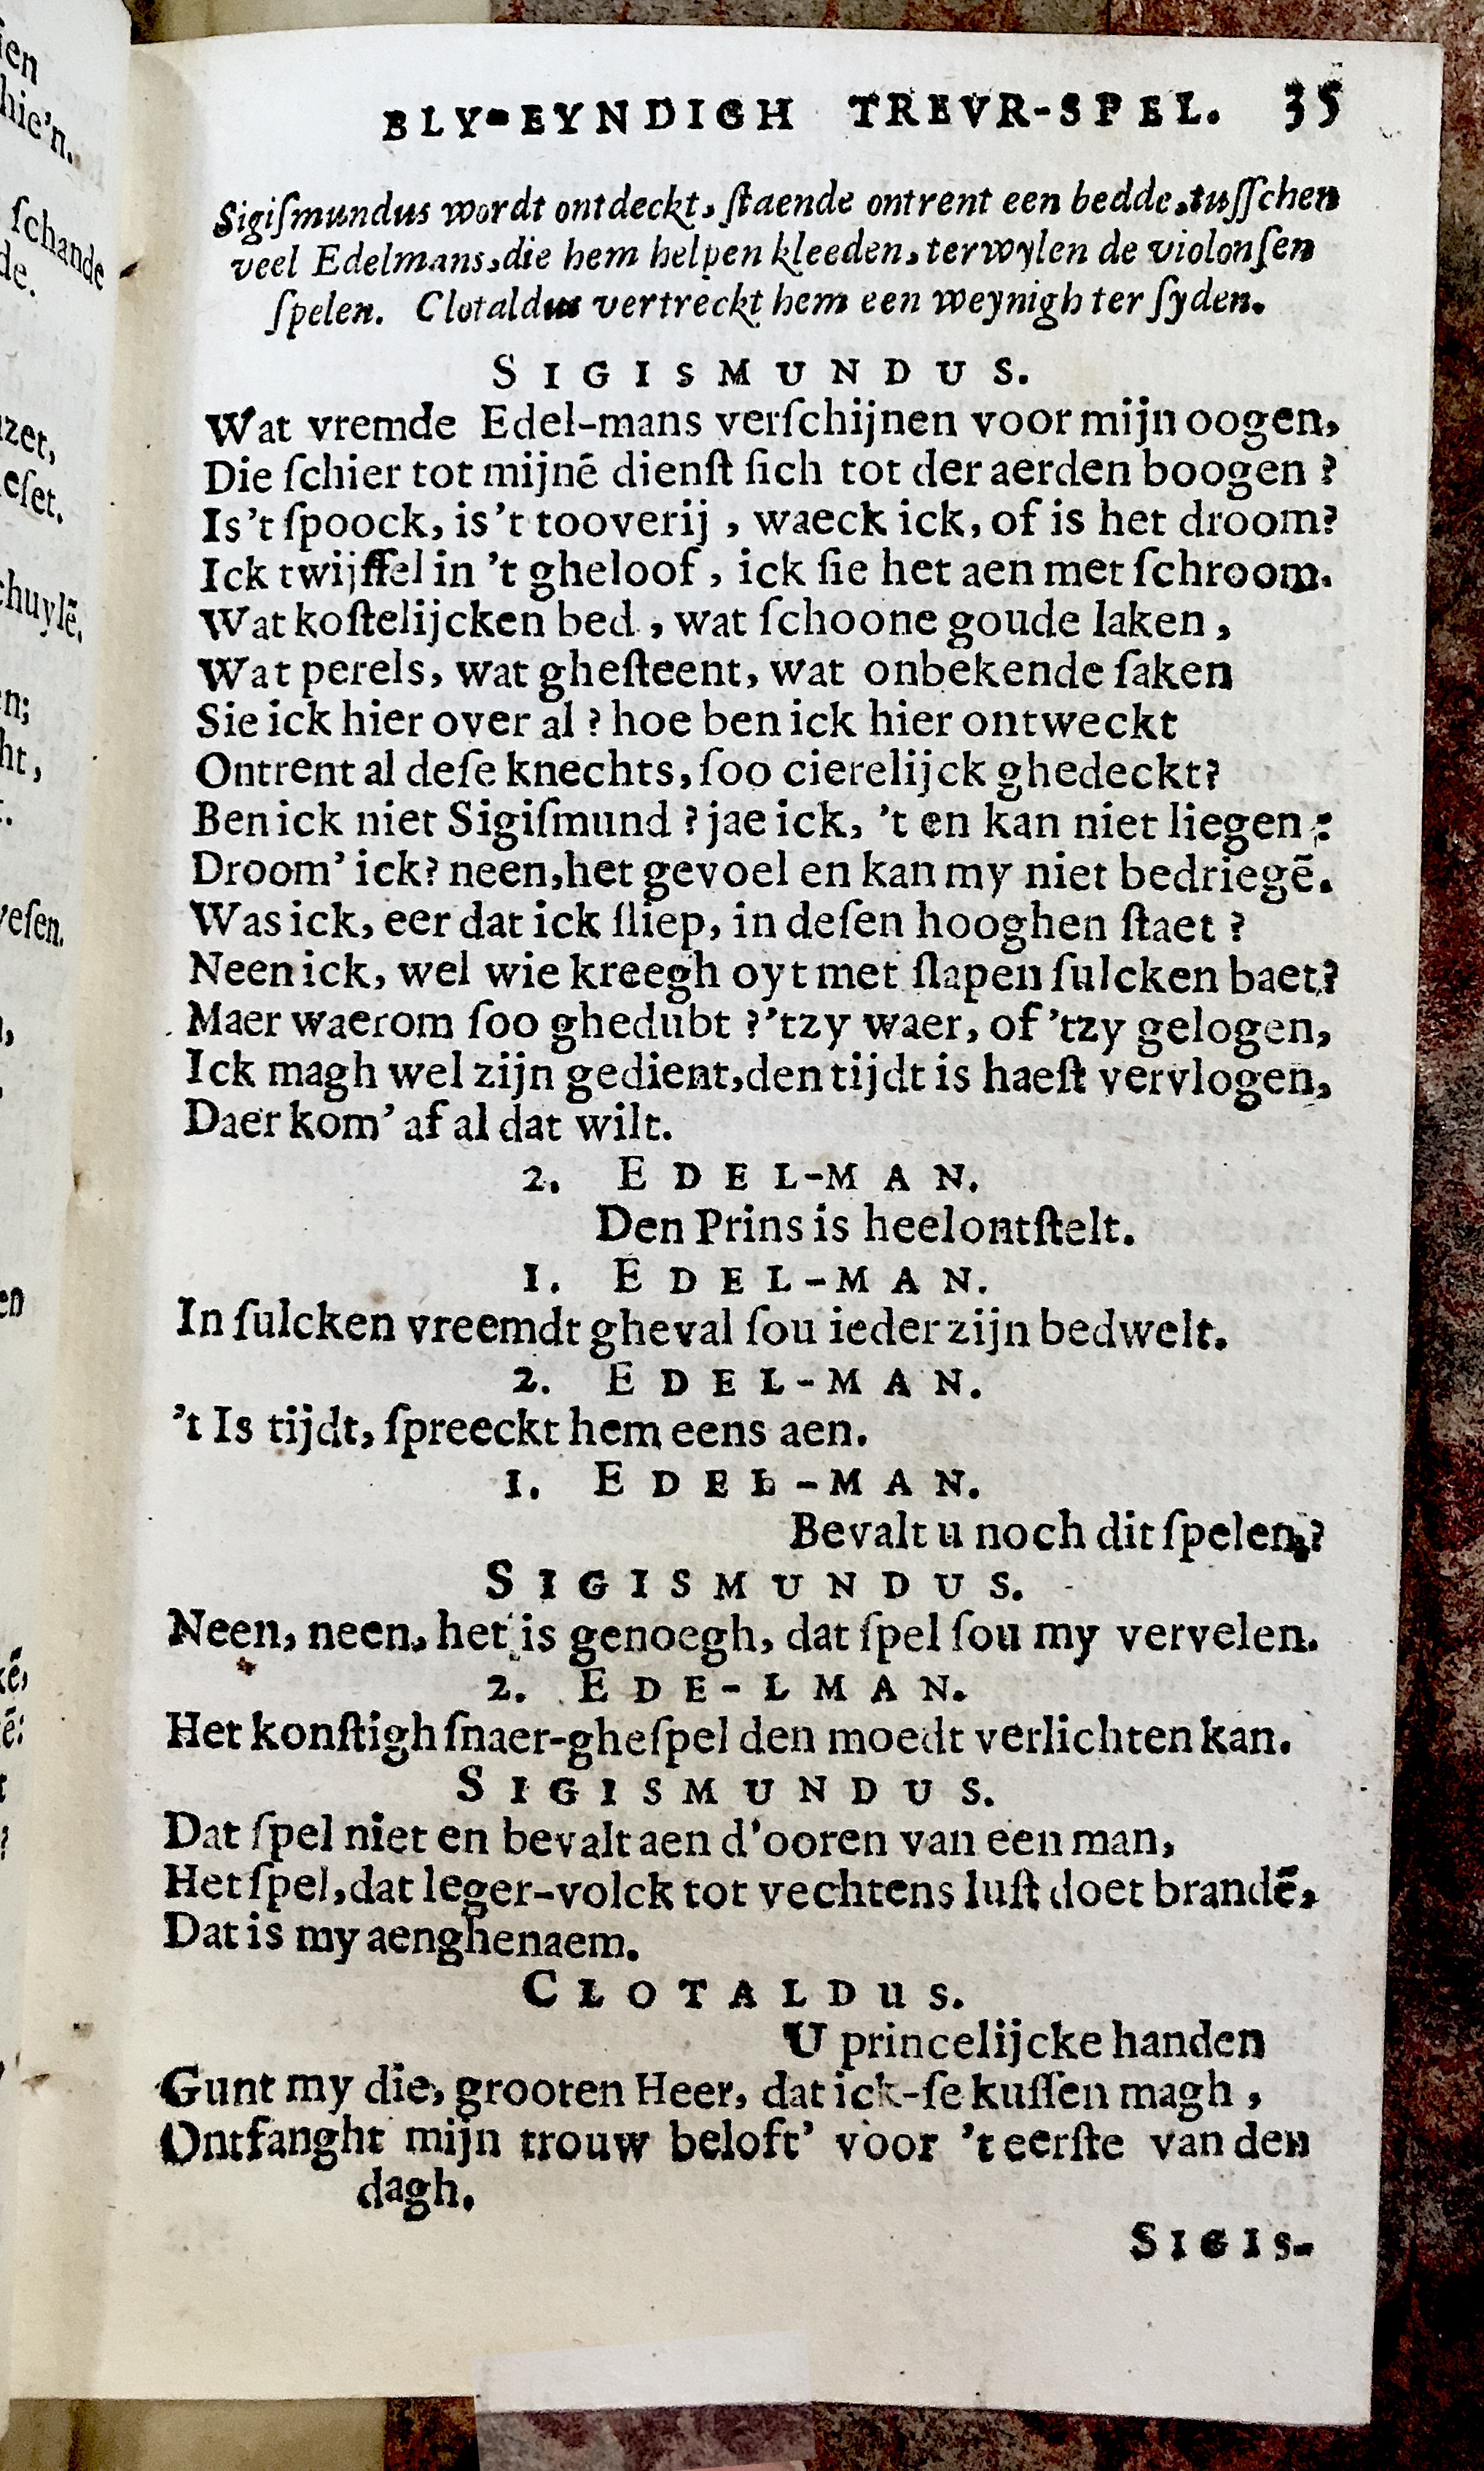 BLY-EYNDIGH TREVR-SPEL. 35
Sigiſmundus wordt ontdeckt, ſtaende ontrent een bedde, tuſſchen
veel Edelmans, die hem helpen kleeden, terwylen de violonſen
ſpelen. Clotaldus vertreckt hem een weynigh ter ſyden.
SIGISMUNDUS.
Wat vremde Edel-mans verſchijnen voor mijn oogen,
Die ſchier tot mijnē dienſt ſich tot der aerden boogen ?
Is 't ſpoock, is 't tooverij , waeck ick, of is het droom?
Ick twijffel in 't gheloof , ick ſie het aen met ſchroom.
Wat koſtelijcken bed , wat ſchoone goude laken ,
Wat perels, wat gheſteent, wat onbekende ſaken
Sie ick hier over al ? hoe ben ick hier ontweckt
Ontrent al deſe knechts, ſoo cierelijck ghedeckt?
Ben ick niet Sigiſmund ? jae ick, 't en kan niet liegen :
Droom' ick? neen, het gevoel en kan my niet bedriegē.
Was ick, eer dat ick ſliep, in deſen hooghen ſtaet ?
Neen ick, wel wie kreegh oyt met ſlapen ſulcken baet?
Maer waerom ſoo ghedubt ? 'tzy waer, of 'tzy gelogen,
Ick magh wel zijn gedient, den tijdt is haeſt vervlogen,
Daer kom' af al dat wilt.
2. EDEL-MAN.
Den Prins is heel ontſtelt.
1. EDEL-MAN.
In ſulcken vreemdt gheval ſou ieder zijn bedwelt.
2. EDEL-MAN.
't Is tijdt, ſpreeckt hem eens aen.
1. EDEL-MAN.
Bevalt u noch dit ſpelen?
SIGISMUNDUS.
Neen, neen, het is genoegh, dat ſpel ſou my vervelen.
2. EDE-LMAN.
Het konſtigh ſnaer-gheſpel den moedt verlichten kan.
SIGISMUNDUS.
Dat ſpel niet en bevalt aen d'ooren van een man,
Het ſpel, dat leger-volck tot vechtens luſt doet brandē,
Dat is my aenghenaem.
CLOTALDuS.
U princelijcke handen
Gunt my die, grooten Heer, dat ick-ſe kuſſen magh ,
Ontfanght mijn trouw beloft' voor 't eerſte van den
dagh.
SIGIS-
ien
hie'n.
ſchande
de.
zet,
eſet.
huylē,
n;
ht,
veſen.
en